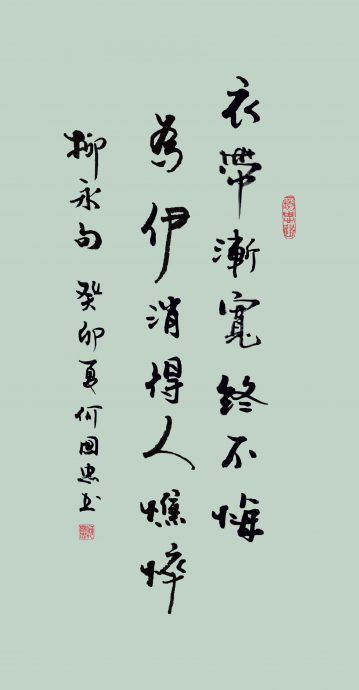 衣帶漸寬終不悔
為伊消得人憔悴
柳永句 癸卯夏何國忠書